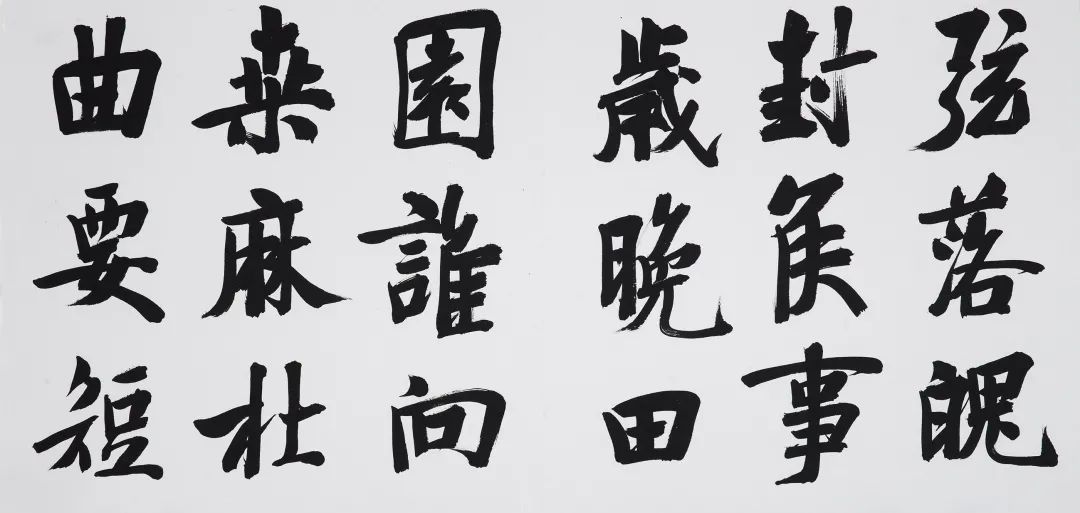 弦落魄
封矦事
歲晚田
園誰向
桒麻杜
曲要短